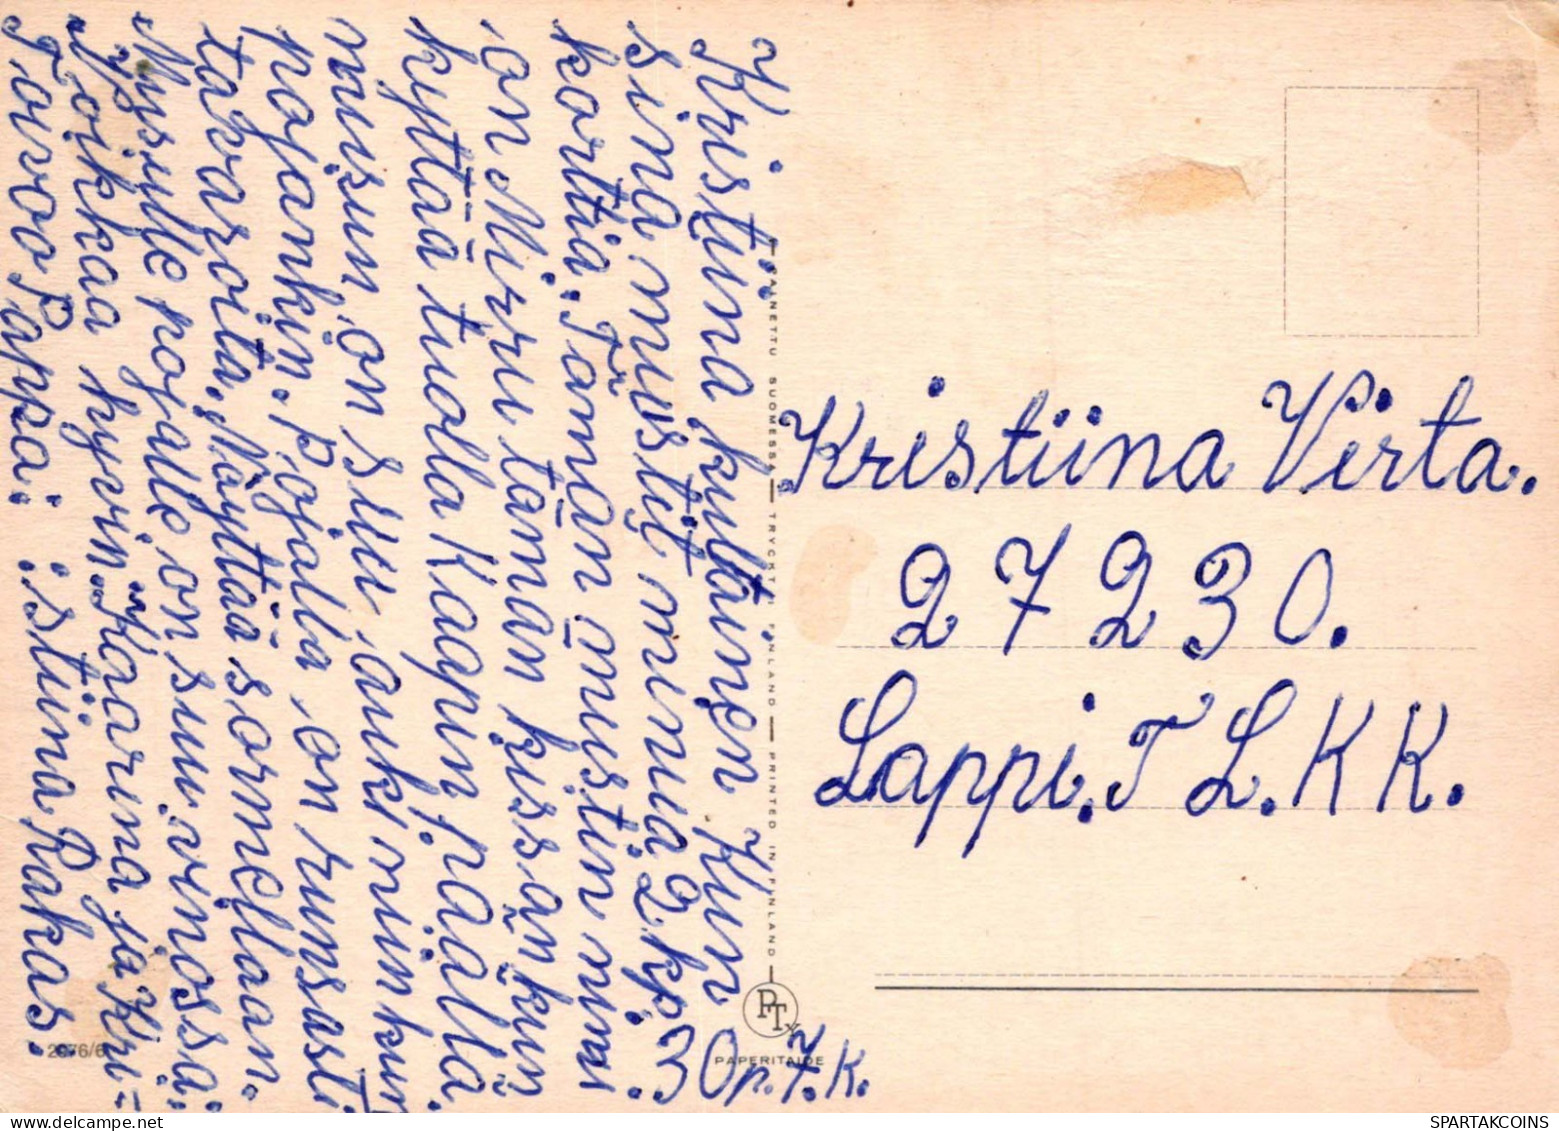 Kristiina kultainen Kun
sinä muistit minua 2 kp.
kortia. Tämän muistin nimi
on Mirru tämän kissan kun
kyttää tuolla Kaapin päällä.
muisun on suu auki niin kun
pojankin. Pojalla on runsasti
tavaroita. Näyttää sormellaan.
Misulle pojalle on suu vinossa.
Voikkaa hyvin. Kaarina ja Kri-
istiina Rakas.
Toivoo Pappa.
30 p. 7. K.
PAINETTU SUOMESSA — TRYCKT I FINLAND — PRINTED IN FINLAND
PTy
PAPERITAIDE
2976/6
Kristiina Virta.
27230.
Lappi. T L. K K.
SPARTAKCOINS